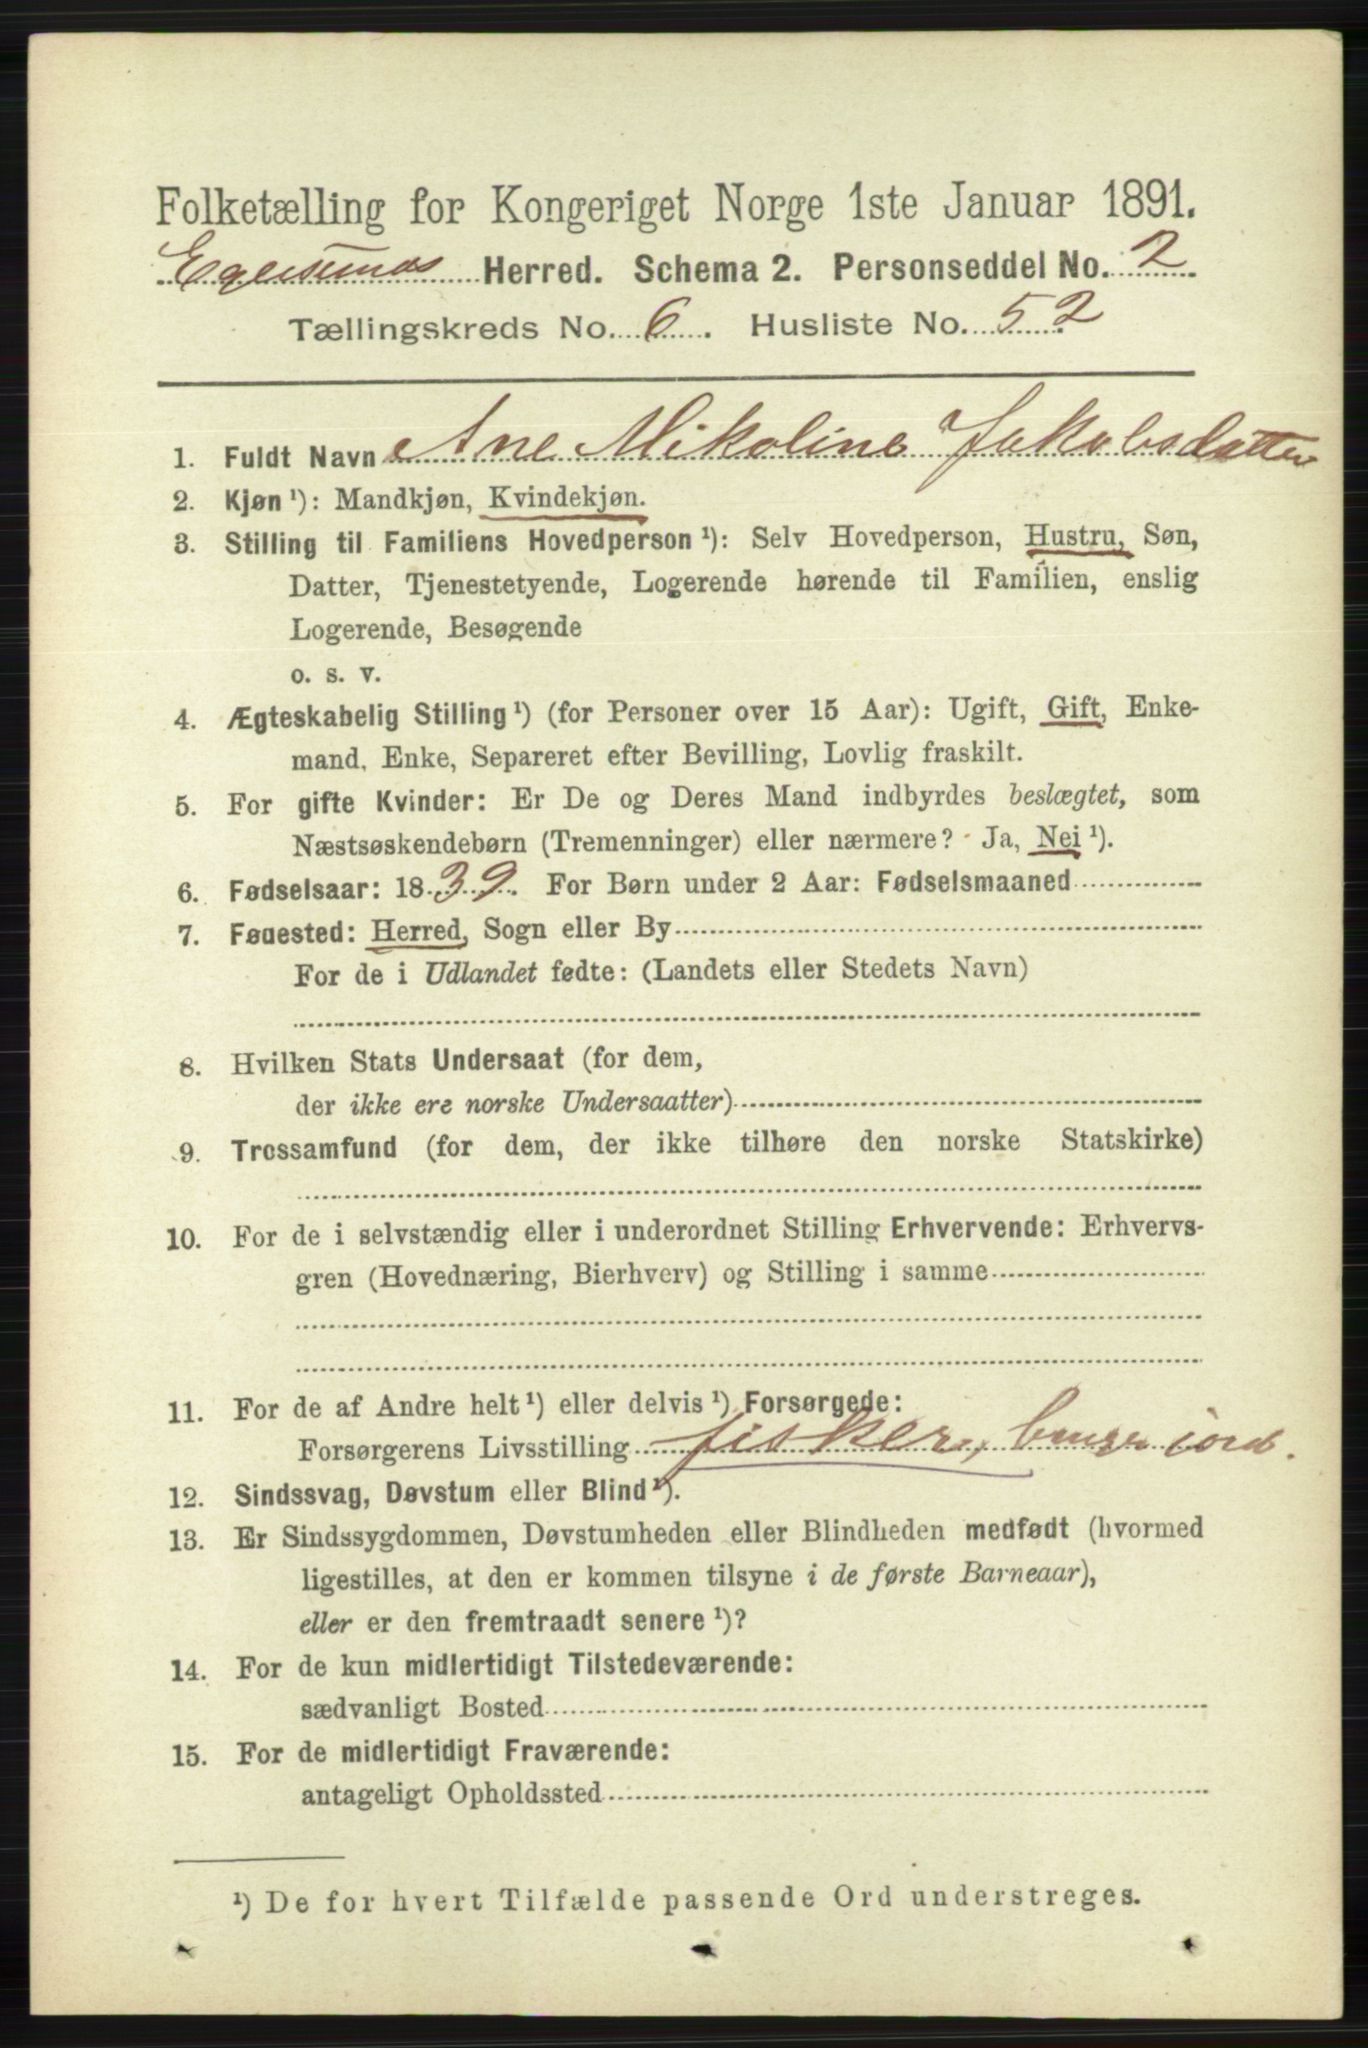 Folketælling for Kongeriget Norge 1ste Januar 1891.
Egersunds Herred. Schema 2. Personseddel No. 2
Tællingskreds No. 6. Husliste No. 52
1. Fuldt Navn Ane Mikoline Jakobsdatter
2. Kjøn ¹): Mandkjøn, Kvindekjøn.
3. Stilling til Familiens Hovedperson ¹): Selv Hovedperson, Hustru, Søn,
Datter, Tjenestetyende, Logerende hørende til Familien, enslig
Logerende, Besøgende
o. s. v.
4. Ægteskabelig Stilling ¹) (for Personer over 15 Aar): Ugift, Gift, Enke-
mand, Enke, Separeret efter Bevilling, Lovlig fraskilt.
5. For gifte Kvinder: Er De og Deres Mand indbyrdes beslægtet, som
Næstsøskendebørn (Tremenninger) eller nærmere? Ja, Nei ¹).
6. Fødselsaar: 1839. For Børn under 2 Aar: Fødselsmaaned
7. Fødested: Herred, Sogn eller By
For de i Udlandet fødte: (Landets eller Stedets Navn)
8. Hvilken Stats Undersaat (for dem,
der ikke ere norske Undersaatter)
9. Trossamfund (for dem, der ikke tilhøre den norske Statskirke)
10. For de i selvstændig eller i underordnet Stilling Erhvervende: Erhvervs-
gren (Hovednæring, Bierhverv) og Stilling i samme
11. For de af Andre helt ¹) eller delvis ¹) Forsørgede:
Forsørgerens Livsstilling fisker, jord.
12. Sindssvag, Døvstum eller Blind ¹).
13. Er Sindssygdommen, Døvstumheden eller Blindheden medfødt (hvormed
ligestilles, at den er kommen tilsyne i de første Barneaar),
eller er den fremtraadt senere ¹)?
14. For de kun midlertidigt Tilstedeværende:
sædvanligt Bosted
15. For de midlertidigt Fraværende:
antageligt Opholdssted
¹) De for hvert Tilfælde passende Ord understreges.